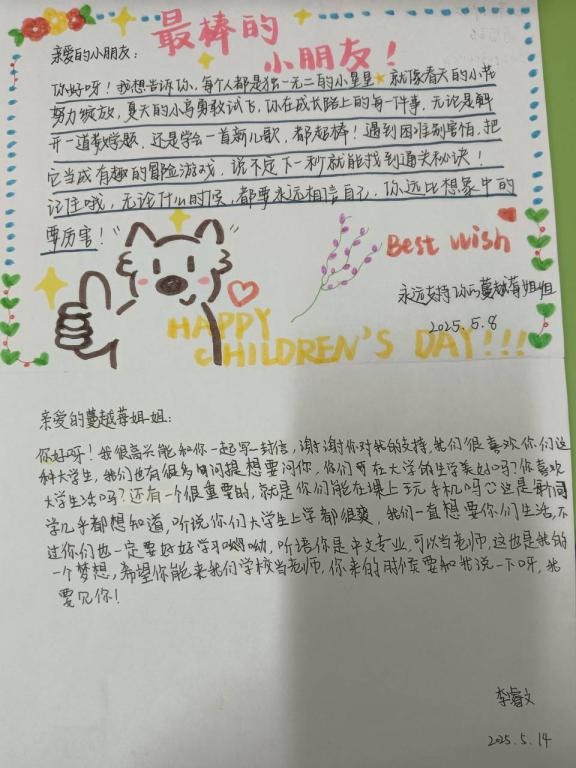 最棒的
小朋友！
亲爱的小朋友：
你好呀！我想告诉你，每个人都是独一无二的小星星，就像春天的小花
努力绽放，夏天的小鸟勇敢试飞，你在成长路上的每一件事，无论是解
开一道数学题，还是学会一首新儿歌，都超棒！遇到困难别害怕，把
它当成有趣的冒险游戏，说不定下一秒就能找到通关秘诀！
记住哦，无论什么时候，都要永远相信自己，你远比想象中的
要厉害！
Best Wish
永远支持你的蔓越莓姐姐
2025.5.8
HAPPY
CHILDREN'S DAY!!!
亲爱的蔓越莓姐姐：
你好呀！我很高兴能和你一起写一封信，谢谢你对我的支持，我们很喜欢你们这
种大学生，我们也有很多问题想要问你，你们在大学的生学美妙吗？你喜欢
大学生活吗？还有一个很重要的，就是你们能在课上玩手机吗 这是我们同
学几乎都想知道，听说你们大学生上学都很爽，我们一直想要你们生活，不
过你们也一定要好好学习呦呦，听语你是中文专业，可以当老师，这也是我的
一个梦想，希望你能来我们学校当老师，你来的时候要和我说一下呀，我
要见你！
李睿文
2025.5.14